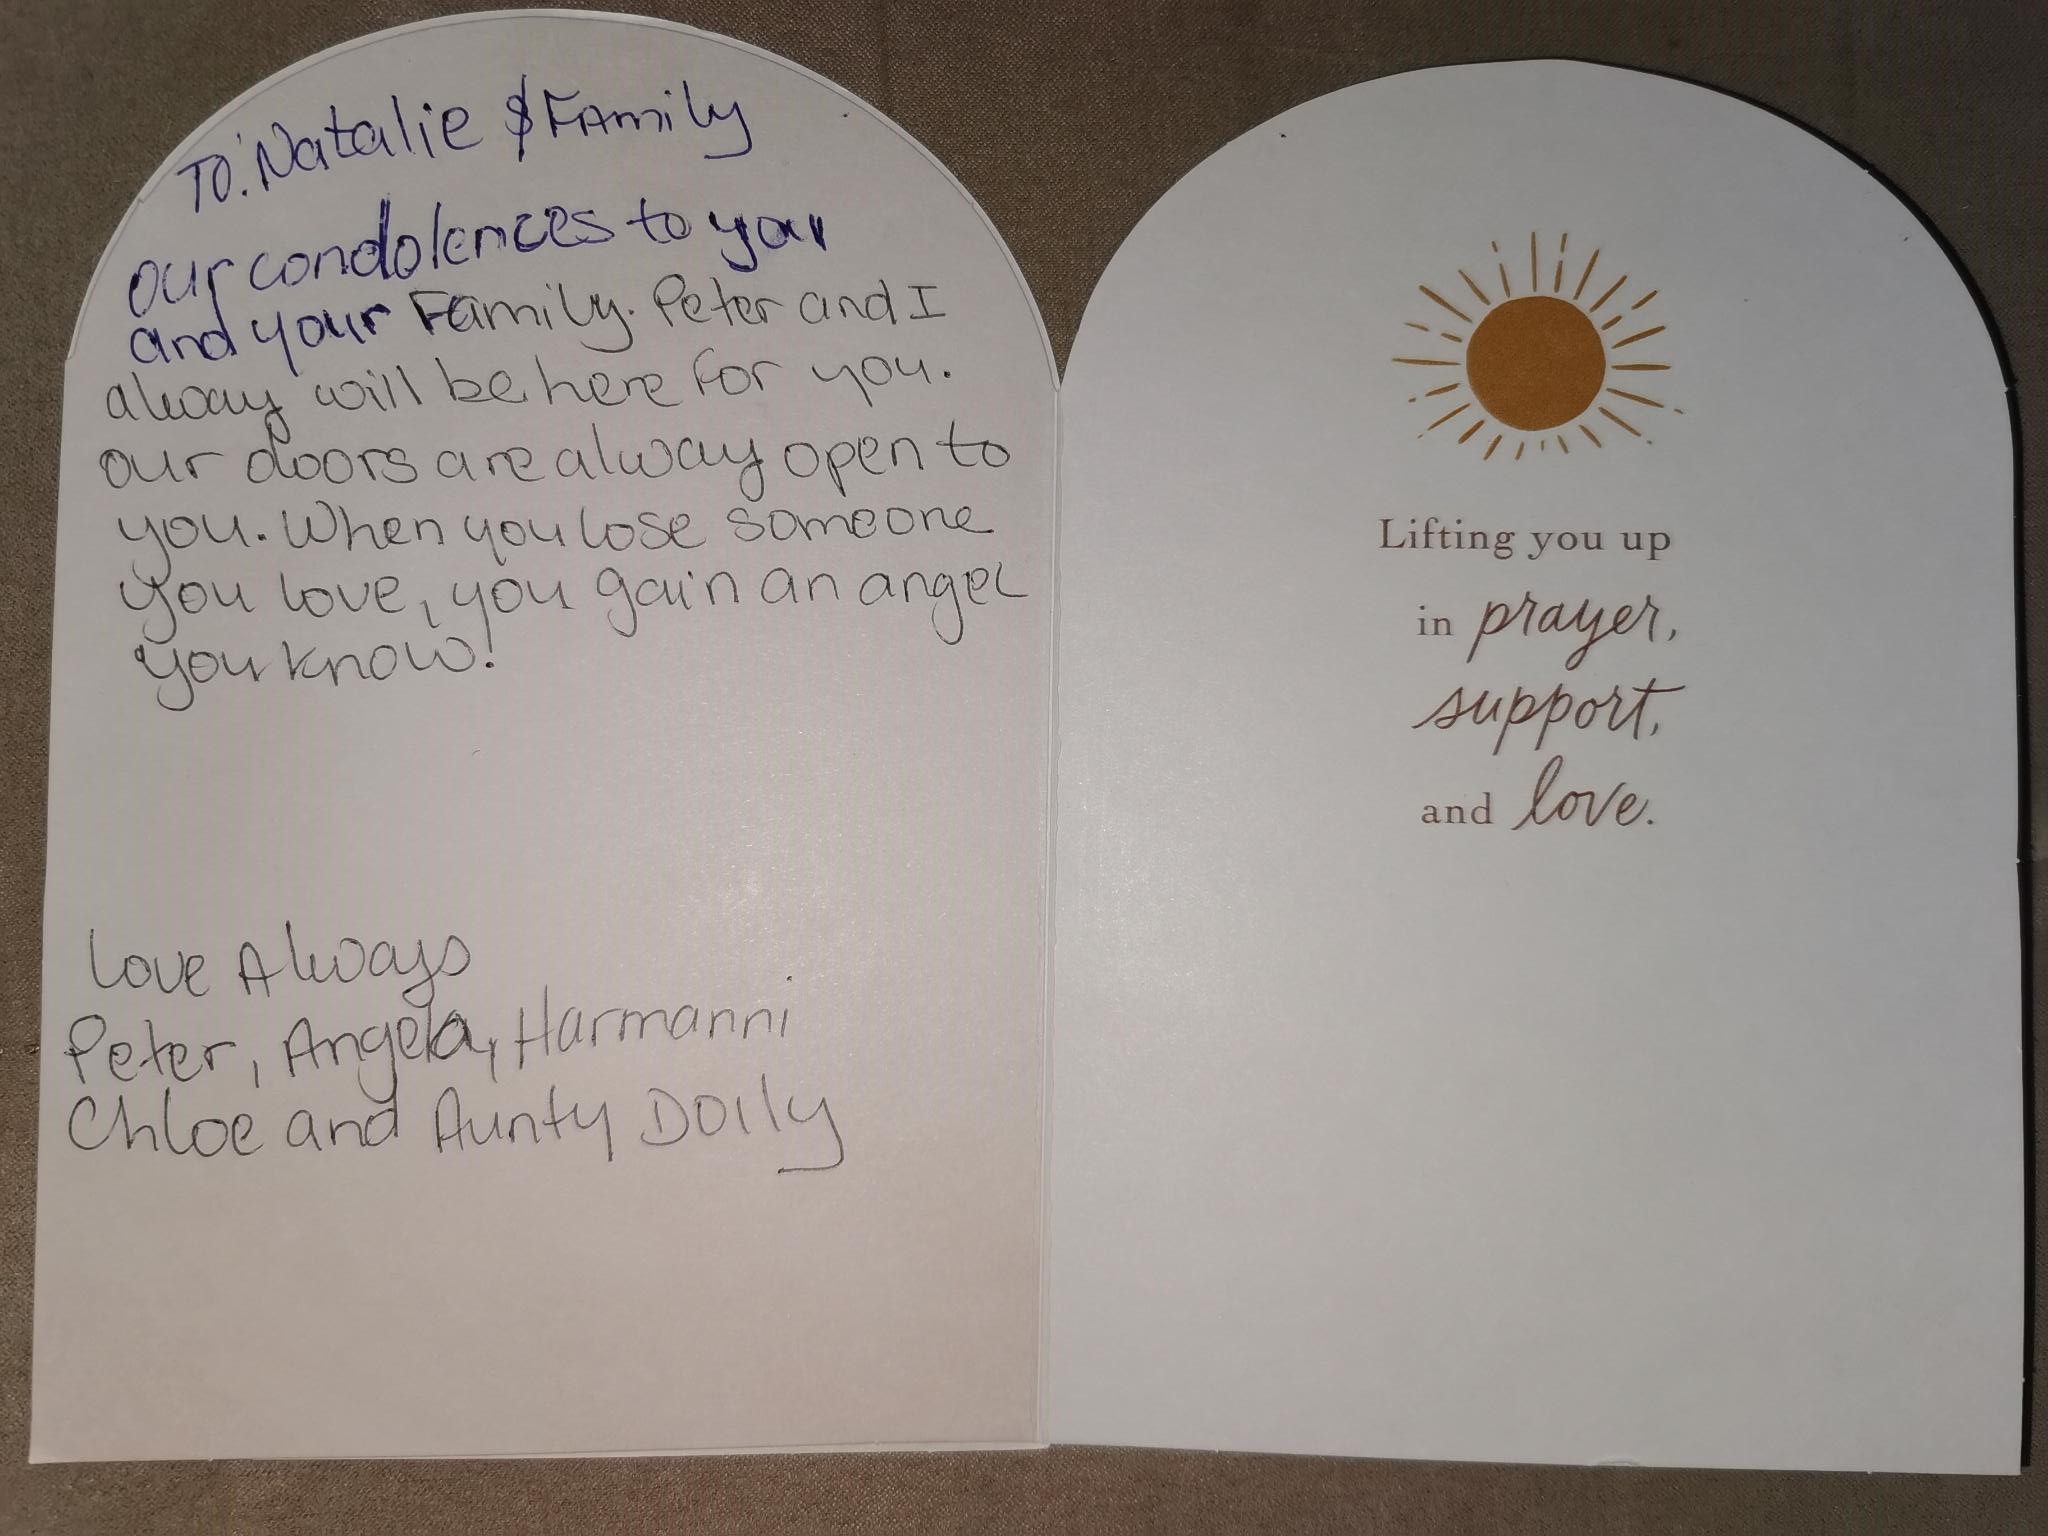 To: Natalie & Family
our condolences to you
and your Family. Peter and I
alway will be here for you.
our doors are alway open to
you. When you lose someone
you love, you gain an angel
you know!
Love Always
Peter, Angela, Harmanni
Chloe and Aunty Dolly
Lifting you up
in prayer,
support,
and love.